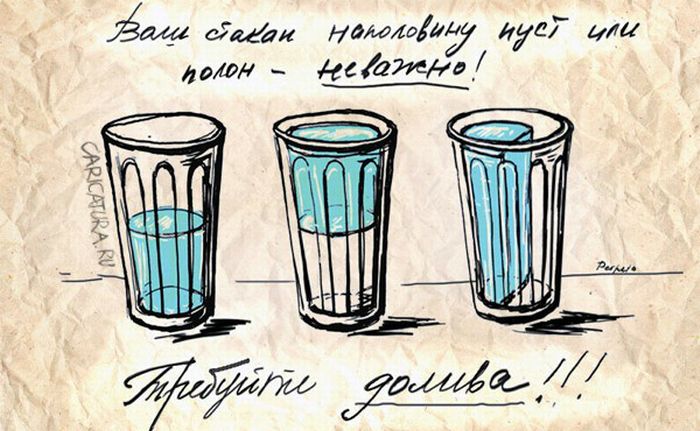 Ваш стакан наполовину пуст или
полон - неважно!
CARICATURA.RU
Требуйте долива!!!